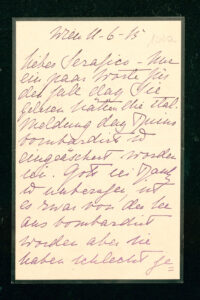 Wien 11-6-15
lieber Serafico - Nur
ein paar Worte für
den Fall dass Sie
gelesen hätten die ital.
Meldung dass Duino
bombardirt u
eingeäschert worden
sei. Gott sei Dank
unwahr
es zwar von der See
aus bombardirt
worden aber sie
haben schlecht ge=